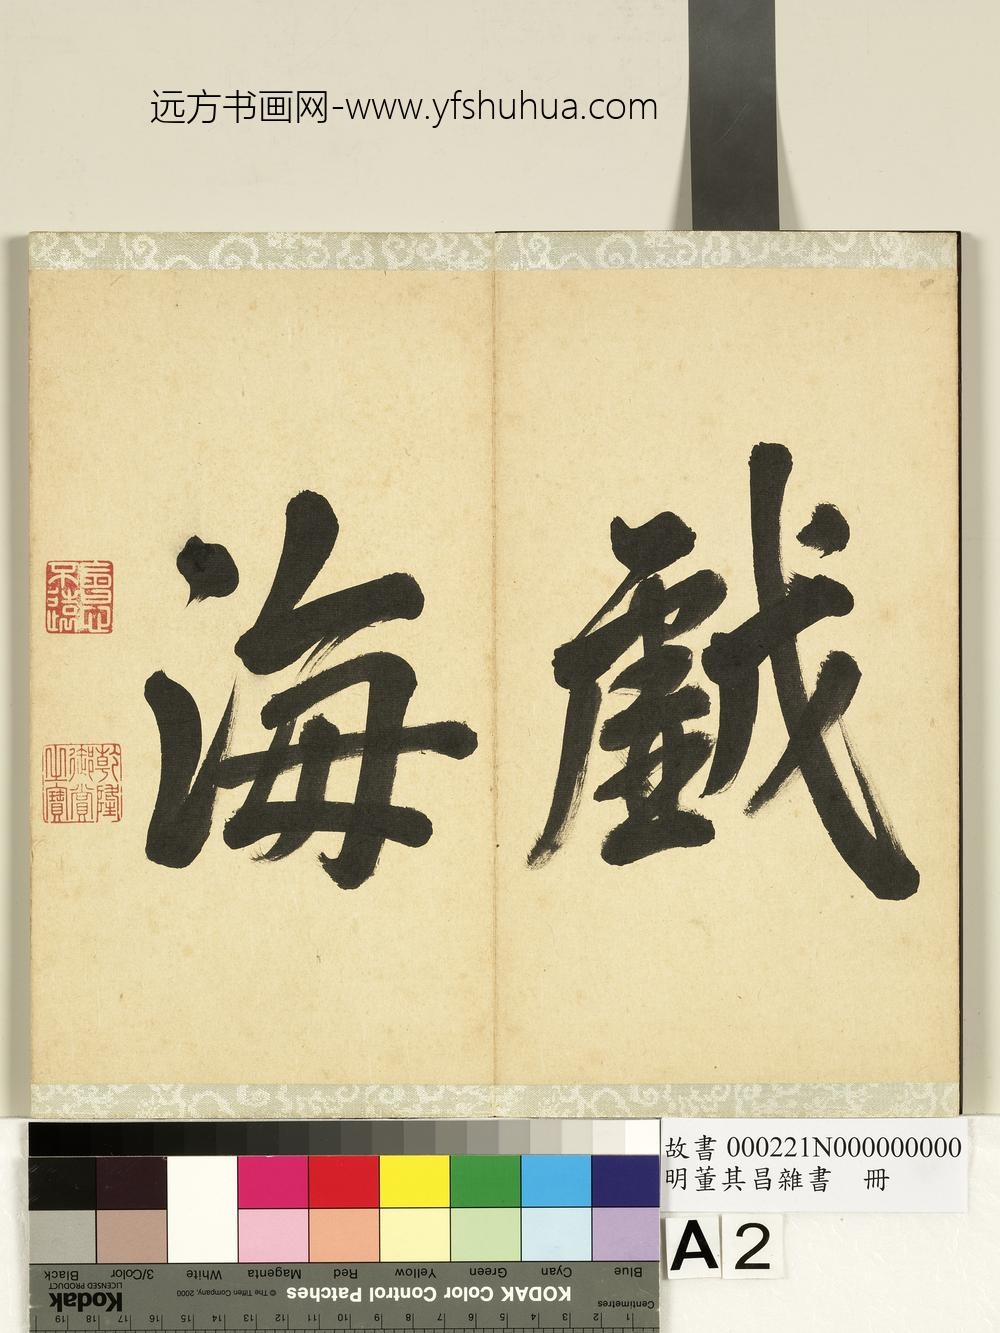 远方书画网-www.yfshuhua.com
戲
海
乾隆
御賞
之寶
故書 000221N000000000
明董其昌雜書 冊
A 2
Blue Cyan Green Yellow Red Magenta White 3/Color Black
Centimetres KODAK Color Control Patches © The Tiffen Company, 2000 Kodak LICENSED PRODUCT
1 2 3 4 5 6 7 8 9 10 11 12 13 14 15 16 17 18 19